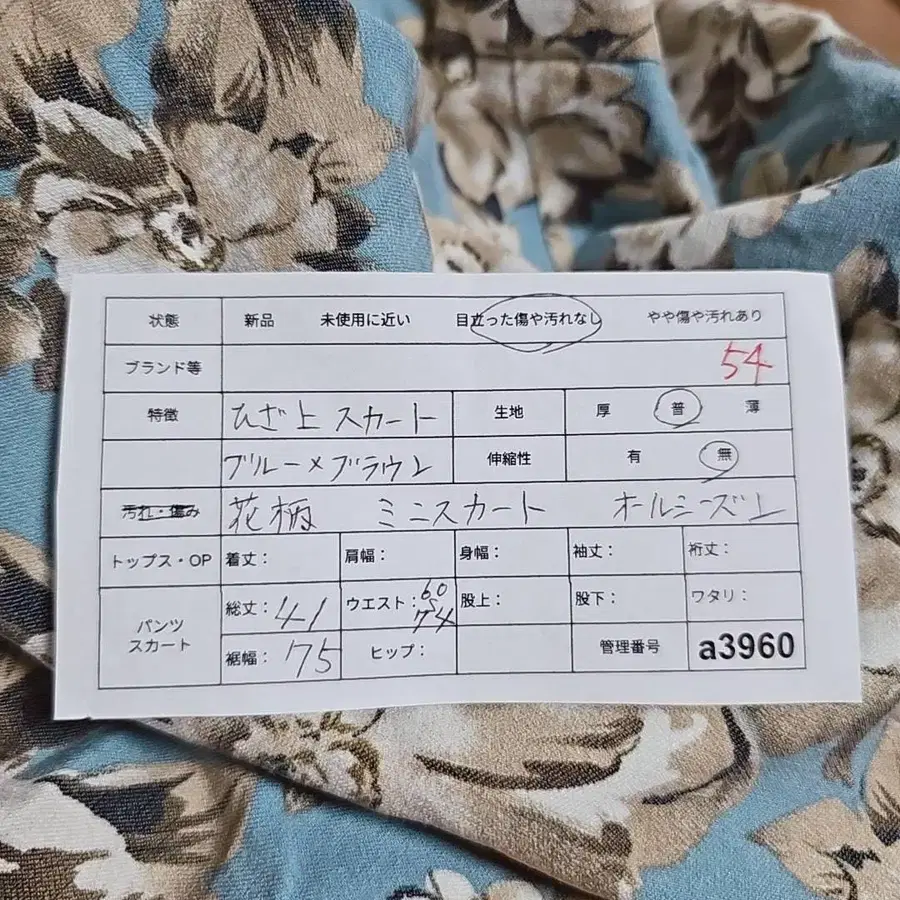 状態 新品 未使用に近い 目立った傷や汚れなし やや傷や汚れあり
ブランド等 54
特徴 ひざ上スカート 生地 厚 普 薄
ブルー×ブラウン 伸縮性 有 無
汚れ・傷み 花柄 ミニスカート オールシーズン
トップス・OP 着丈: 肩幅: 身幅: 袖丈: 裄丈:
パンツ スカート 総丈:41 ウエスト:60 S 74 股上: 股下: ワタリ:
裾幅:75 ヒップ: 管理番号 a3960